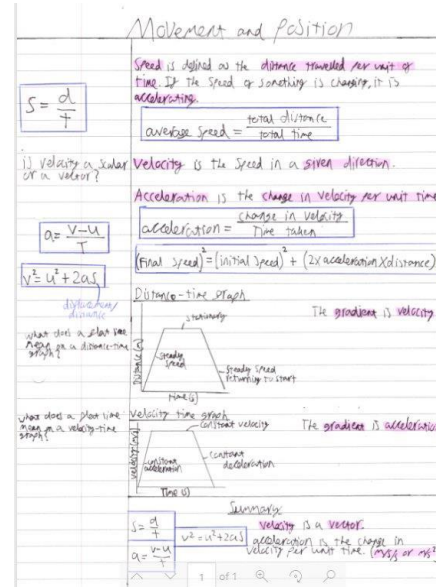 Movement and Position
Speed is defined as the distance travelled per unit of
time. If the speed of something is changing, it is
accelerating.
S = d/t
average speed = total distance/total time
is velocity a scalar
or a vector?
Velocity is the speed in a given direction.
Acceleration is the change in velocity per unit time
a = v-u/T
acceleration = change in velocity/Time taken
v² = u² + 2as
(Final speed)² = (initial speed)² + (2x acceleration x distance)
displacement/
distance
Distance-time graph
what does a flat line
mean on a distance-time
graph?
stationary
The gradient is velocity
Distance (m)
steady
speed
steady speed
returning to start
time (s)
what does a flat line
mean on a velocity-time
graph?
Velocity time graph
constant velocity
The gradient is acceleration
velocity (m/s)
constant
acceleration
constant
deceleration
Time (s)
Summary
S = d/t
v² = u² + 2as
a = v-u/T
velocity is a vector.
acceleration is the change in
velocity per unit time. (m/s/s or m/s²
1 of 1